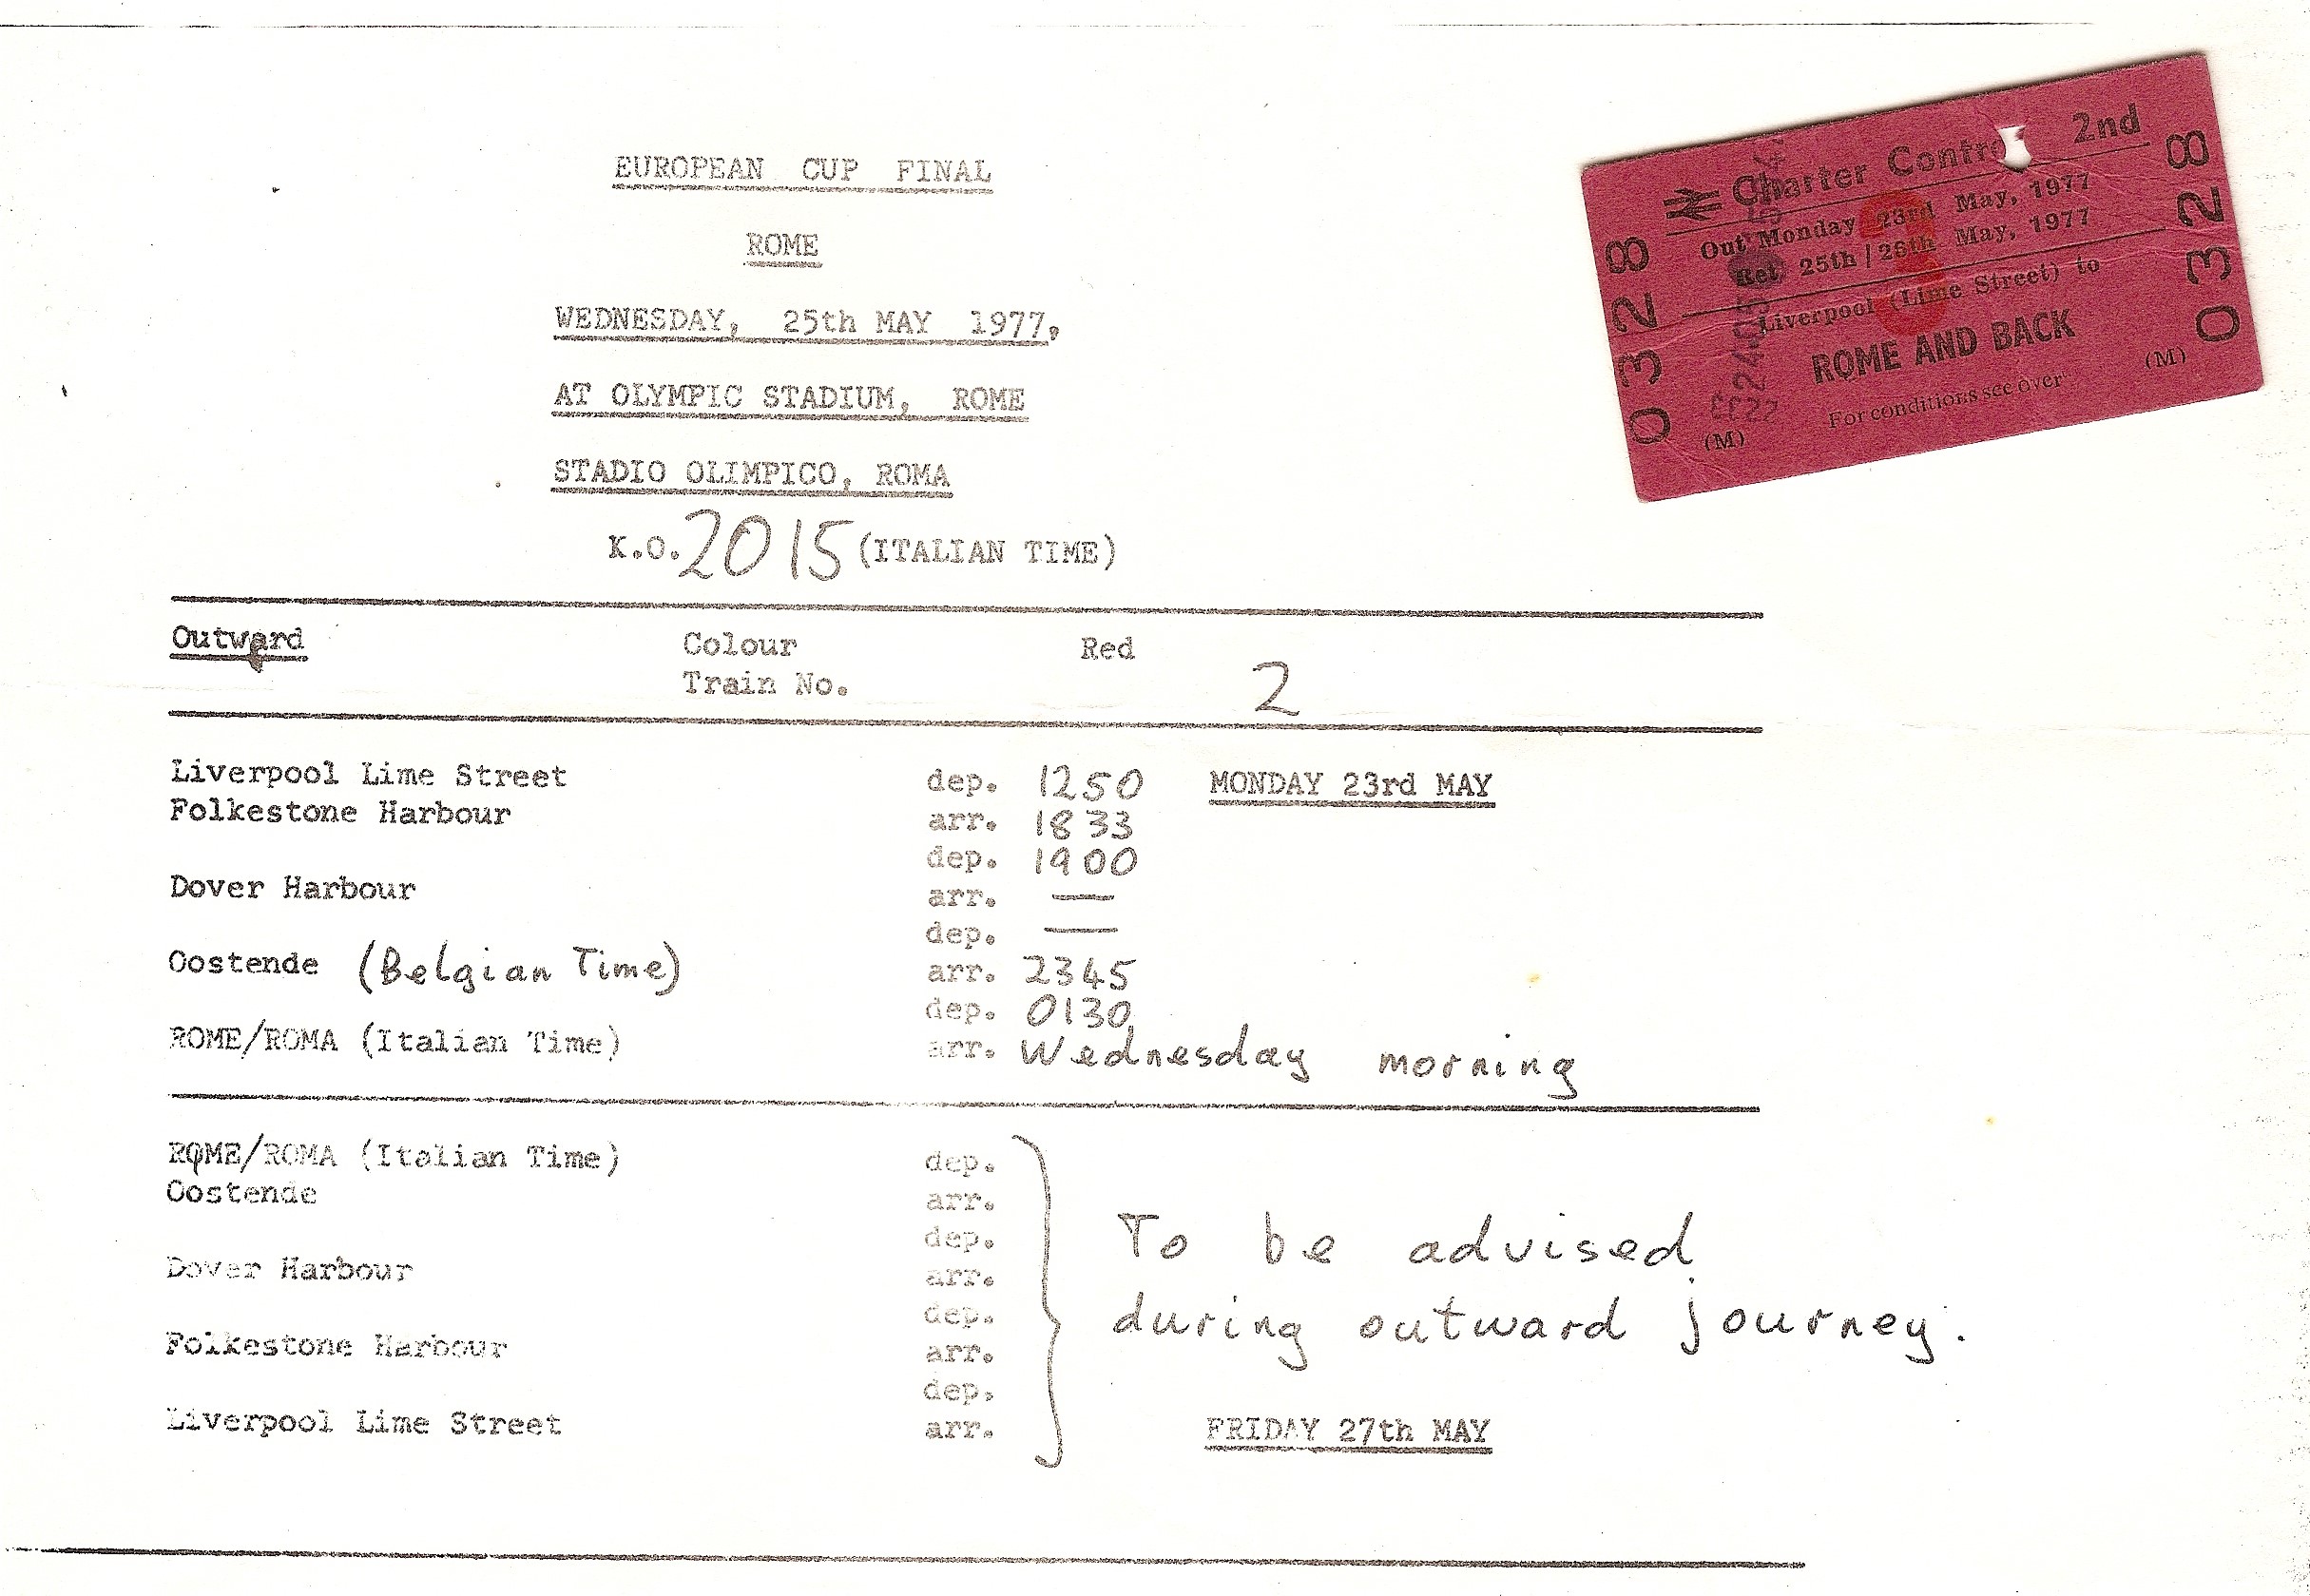 EUROPEAN CUP FINAL
ROME
WEDNESDAY, 25th MAY 1977,
AT OLYMPIC STADIUM, ROME
STADIO OLIMPICO, ROMA
K.O. 2015 (ITALIAN TIME)
Charter 2nd
Out Monday 23rd May, 1977
Ret 25th/26th May, 1977
Liverpool (Lime Street) to
ROME AND BACK
For conditions see over
(M) (M)
0328 0328
Outward Colour Red
Train No. 2
Liverpool Lime Street dep. 1250 MONDAY 23rd MAY
Folkestone Harbour arr. 1833
dep. 1900
Dover Harbour arr. —
dep. —
Oostende (Belgian Time) arr. 2345
dep. 0130
ROME/ROMA (Italian Time) arr. Wednesday morning
ROME/ROMA (Italian Time) dep.
Oostende arr.
dep.
Dover Harbour arr.
dep.
Folkestone Harbour arr.
dep.
Liverpool Lime Street arr.
To be advised
during outward journey.
FRIDAY 27th MAY